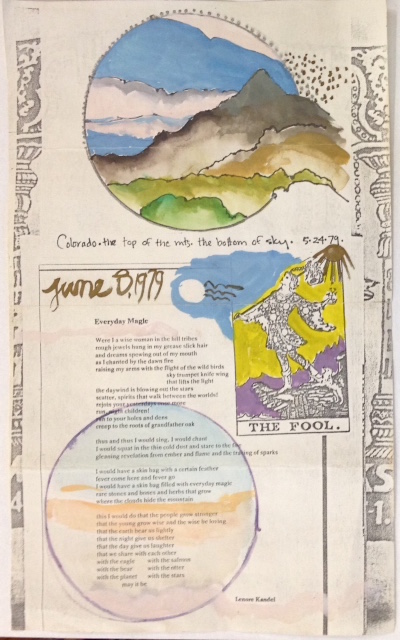 Colorado. the top of the mts. the bottom of sky. 5.24.79.
June 8, 1979
Everyday Magic
Were I a wise woman in the hill tribes
rough jewels hung in my grease slick hair
and dreams spewing out of my mouth
as I chanted by the dawn fire
raising my arms with the flight of the wild birds
sky trumpet knife wing
that lifts the light
the daywind is blowing out the stars
scatter, spirits that walk between the worlds!
rejoin your yesterdays once more
run, night children!
run to your holes and dens
creep to the roots of grandfather oak
thus and thus I would sing, I would chant
I would squat in the thin cold door and stare to the fire
gleaning revelation from ember and flame and the of sparks
I would have a skin bag with a certain feather
fever come here and fever go
I would have a skin bag filled with everyday magic
rare stones and bones and herbs that grow
where the clouds hide the mountain
this I would do that the people grow stronger
that the young grow wise and the wise be loving
that the earth bear us lightly
that the night give us shelter
that the day give us laughter
that we share with each other
with the eagle with the salmon
with the bear with the otter
with the planet with the stars
may it be
Lenore Kandel
THE FOOL.